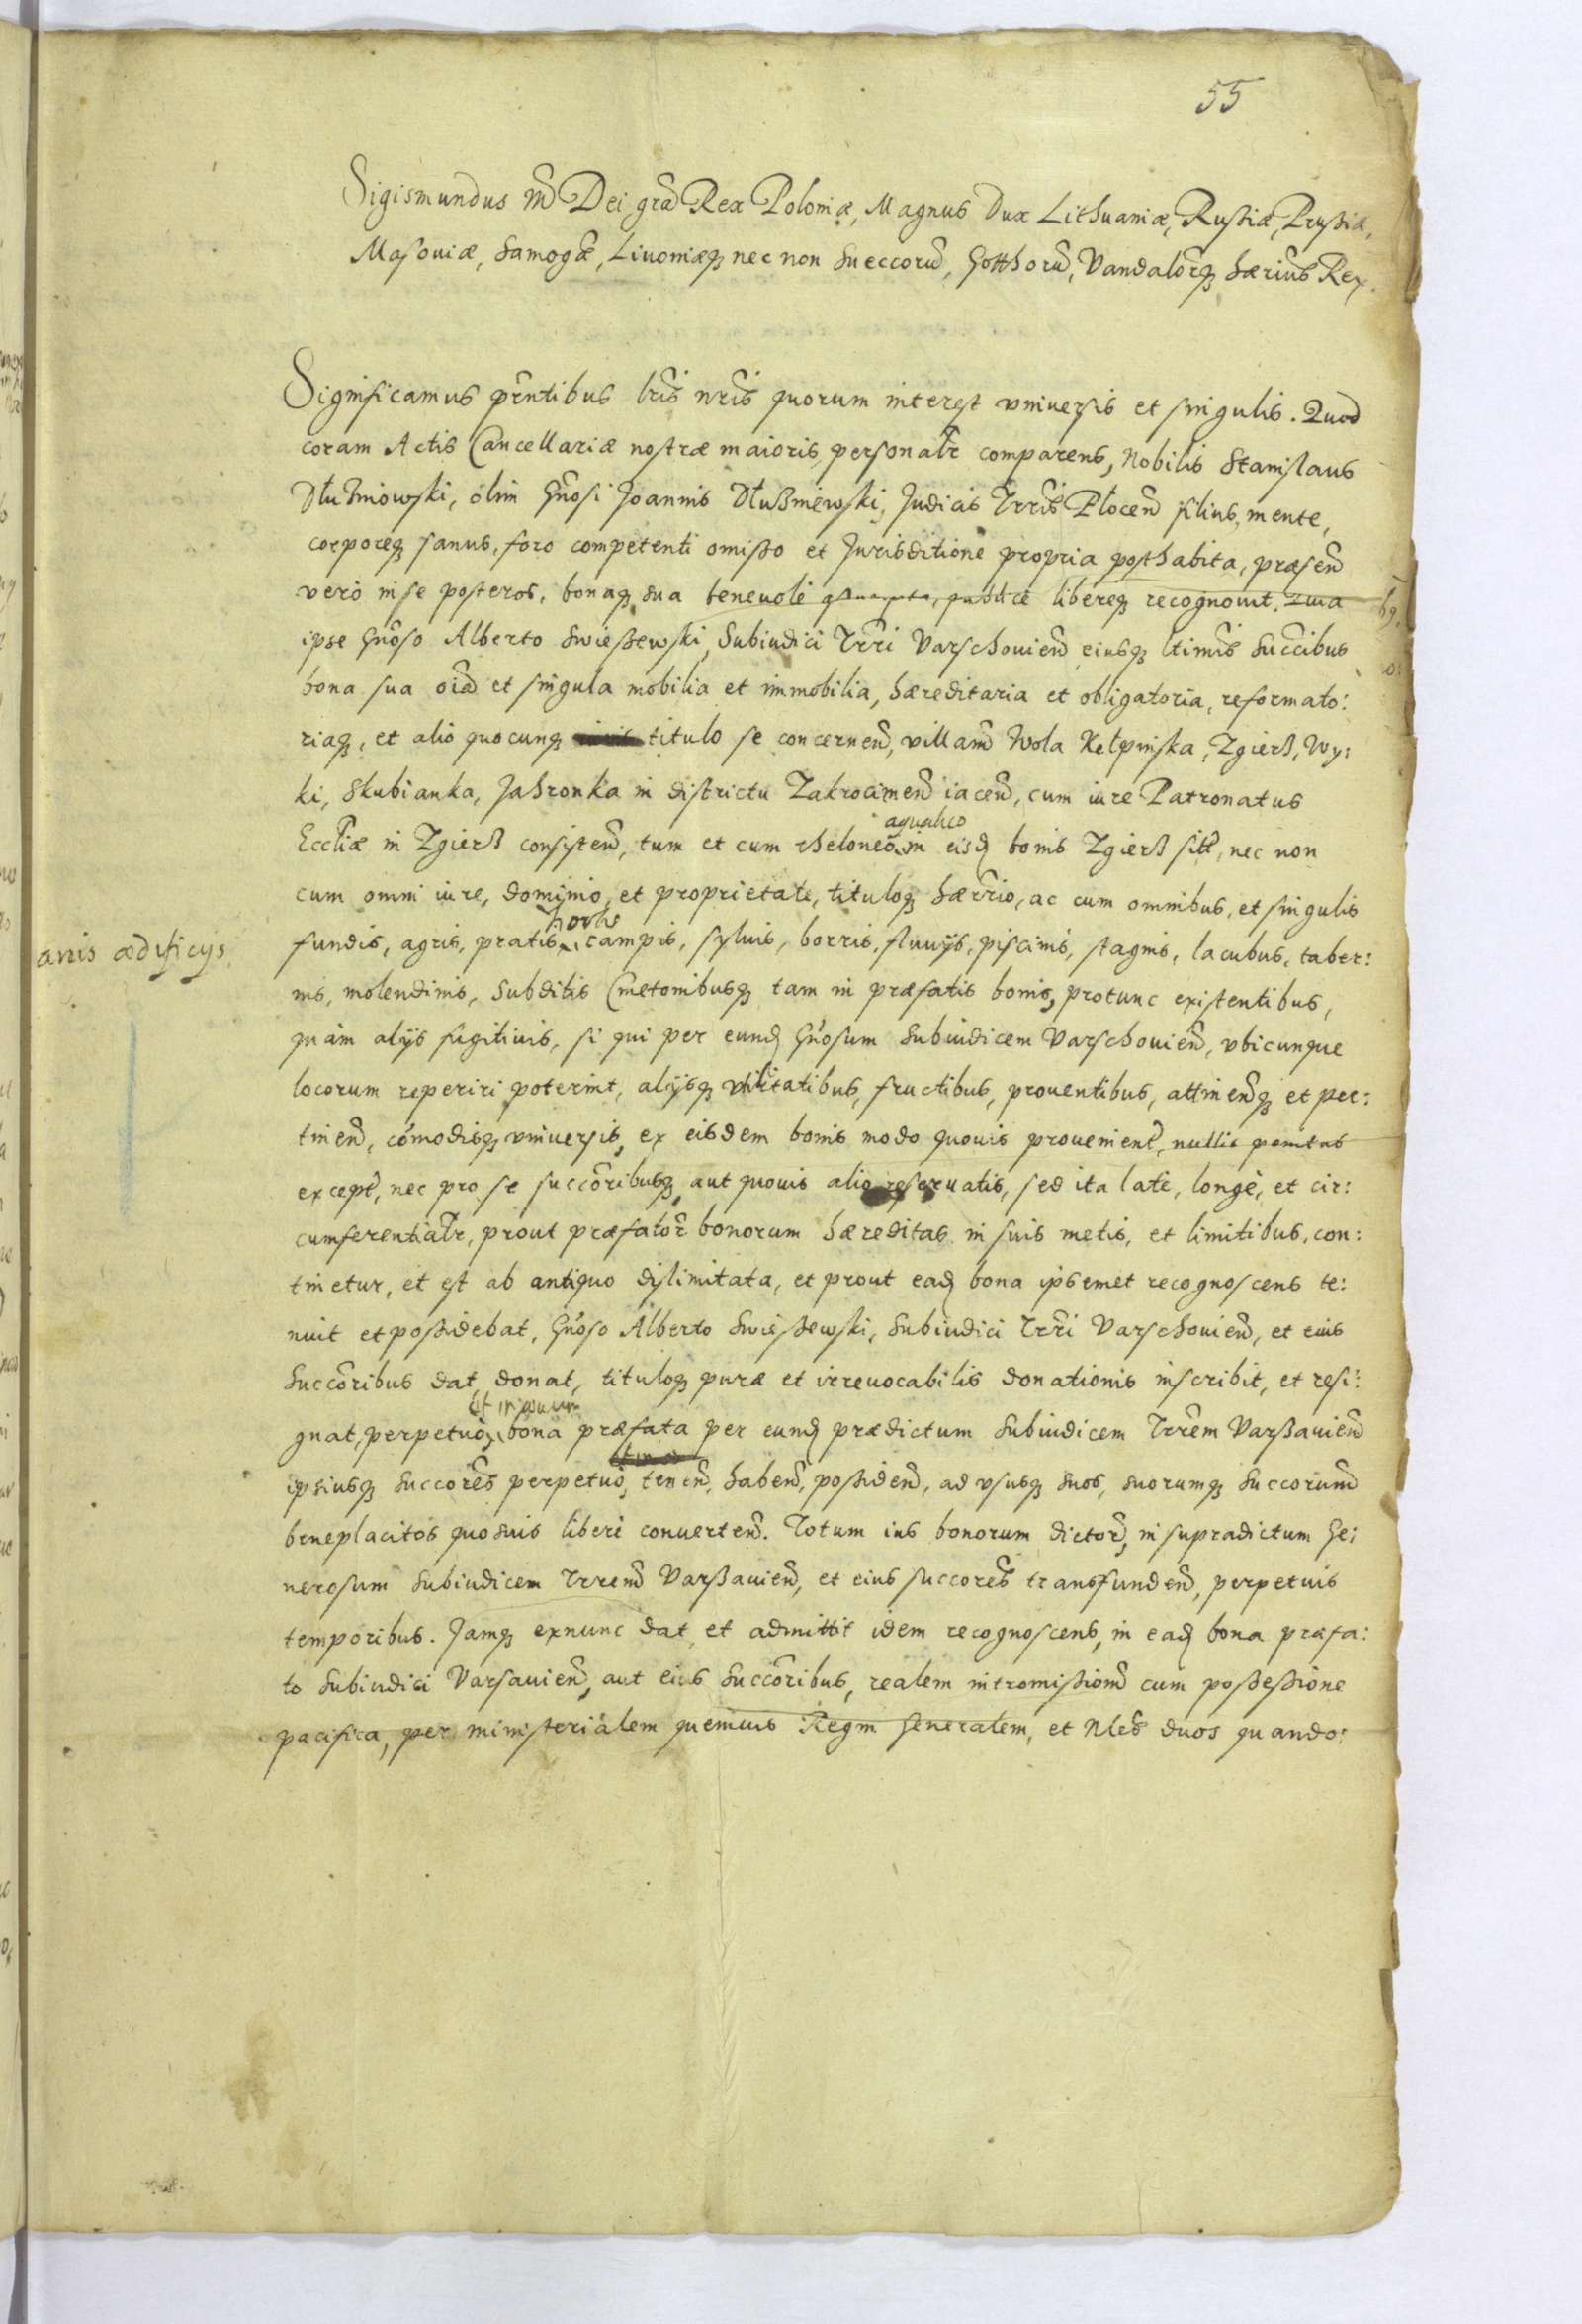 55
Sigismundus IIIᵈ Dei gr̃a Rex Poloniæ, Magnus Dux Lithuaniæ, Rußiæ, Prußiæ,
Masouiæ, Samogæ̃, Liuoniæqꝫ nec non Sueccorũ, Gotthorũ, Vandalorq̃ꝫ hæriũs Rex.
Significamus pr̃ntibus lr̃is nr̃is quorum interest vniuersis et singulis. Quod
coram Actis Cancellariæ nostræ maioris, personalr̃ comparens, Nobilis Stanislaus
Dłużniowski, olim Gñosi Joannis Dłużniewski, Judicis Trr̃is Płocen̄ filius, mente,
corporeqꝫ sanus, foro competenti omisso et Jurisditione propria posthabita, præsen̄
vero in se posteros, bonaqꝫ sua beneuole publice libereqꝫ recognouit. Quia
ipse Gñoso Alberto Swießewski, Subiudici Trr̃i Varschouien̄ eiusqꝫ ltimis̃ succ̃ibus
bona sua oĩa et singula mobilia et immobilia, hæreditaria et obligatoria, reformato:
riaqꝫ, et alio quocunqꝫ titulo se concernen̄, villam̃ Wola Kełpinska, Zgierß, Wy:
ki, Skubianka, Jachronka in districtu Zakrocimen̄ iacen̄, cum iure Patronatus
aqualico
Eccl̃iæ in Zgierß consisten̄, tum et cum theloneo in eisdꝫ bonis Zgierß sitt̃, nec non
cum omni iure, dominio, et proprietate, tituloqꝫ hær̃rio, ac cum omnibus, et singulis
hortis
fundis, agris, pratis, campis, syluis, borris, fluuijs, piscinis, stagnis, lacubus, taber:
anis ædificijs
nis, molendinis, subditis Cmetonibusqꝫ tam in præfatis bonis, protunc existentibus,
quàm alijs fugitiuis, si qui per eundꝫ Gñosum Subiudicem Varschouien̄, vbicunque
locorum reperiri poterint, alijsqꝫ vtilitatibus, fructibus, prouentibus, attinen̄qꝫ et per:
tinen̄, cõmodisqꝫ vniuersis, ex eisdem bonis modo quouis prouenient̃, nullis penitus
except̃, nec pro se succõribusqꝫ aut quouis alio reseruatis, sed ita late, longè, et cir:
cumferentialr̃, prout præfator̃ bonorum hæreditas in suis metis, et limitibus, con:
tinetur, et est ab antiquo dislimitata, et prout eadꝫ bona ipsemet recognoscens te:
nuit et poßidebat, Gñoso Alberto Swießewski, Subiudici Trr̃i Varschouien̄, et eius
Succõribus dat, donat, tituloqꝫ puræ et irreuocabilis donationis inscribit, et resi:
et in æuum
gnat, perpetuò, bona præfata per eundꝫ prædictum Subiudicem Trr̃em Varßauien̄
ipsiusqꝫ Succorẽs perpetuo, tenen̄, haben̄, poßiden̄, ad vsusqꝫ suos, suorumqꝫ Succorum̃
beneplacitos quosuis liberè conuerten̄. Totum ius bonorum dictor̃, in supradictum Ge:
nerosum Subiudicem Trrem̃ Varßauien̄, et eius succorẽs transfunden̄, perpetuis
temporibus. Jamqꝫ exnunc dat et admittit idem recognoscens, in eadꝫ bona præfa:
to Subiudici Varsauien̄, aut eius Succõribus, realem intromißionẽ cum poßeßione
pacifica, per ministerialem quemuis Regni Generalem, et Nlẽs duos quando: